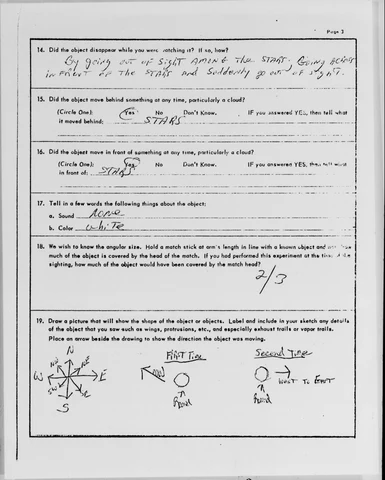 Page 3
14. Did the object disappear while you were watching it? If so, how?
By going out of sight AMING the STARS, Going
in front of the STARS and Suddenly go out of sight.
15. Did the object move behind something at any time, particularly a cloud?
(Circle One): Yes No Don't Know. IF you answered YES, then tell what
it moved behind: STARS
16. Did the object move in front of something at any time, particularly a cloud?
(Circle One): Yes No Don't Know. IF you answered YES, then tell what
in front of: STARS
17. Tell in a few words the following things about the object:
a. Sound None
b. Color White
18. We wish to know the angular size. Hold a match stick at arm's length in line with a known object and
much of the object is covered by the head of the match. If you had performed this experiment at the time of the
sighting, how much of the object would have been covered by the match head?
2/3
19. Draw a picture that will show the shape of the object or objects. Label and include in your sketch any details
of the object that you saw such as wings, protrusions, etc., and especially exhaust trails or vapor trails.
Place an arrow beside the drawing to show the direction the object was moving.
First Time Second Time
N
NW NE
W E
SW SE
S
NW
West to East
Round Round